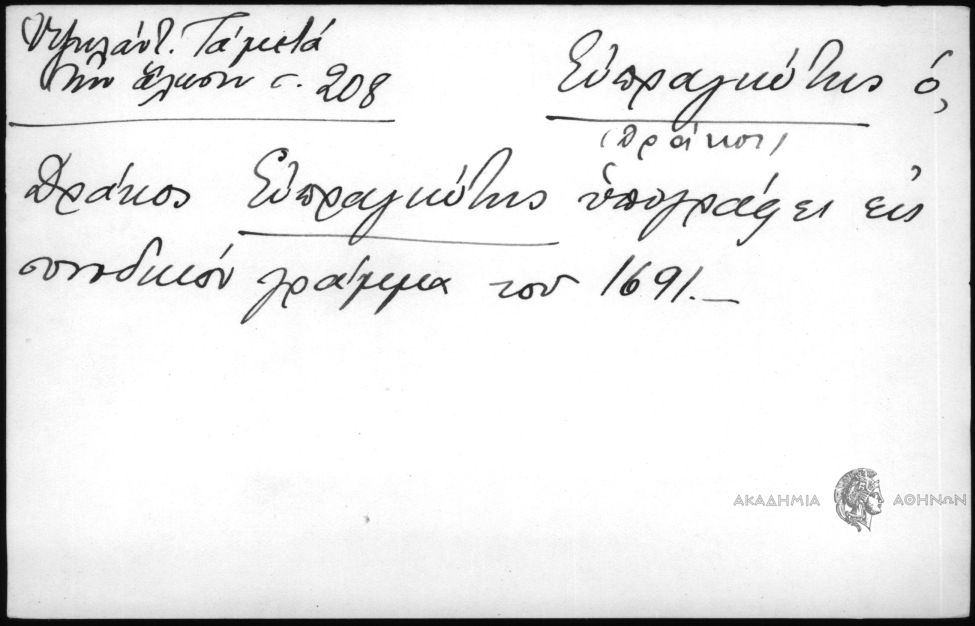 Ὑψηλάντ. Τὰ μετὰ
τὴν ἅλωσιν σ. 208
Εὐπραγιώτης ὁ,
(Δράκος)
Δράκος Εὐπραγιώτης ὑπογράφει εἰς
συνοδικόν γράμμα του 1691.—
ΑΚΑΔΗΜΙΑ ΑΘΗΝΩΝ